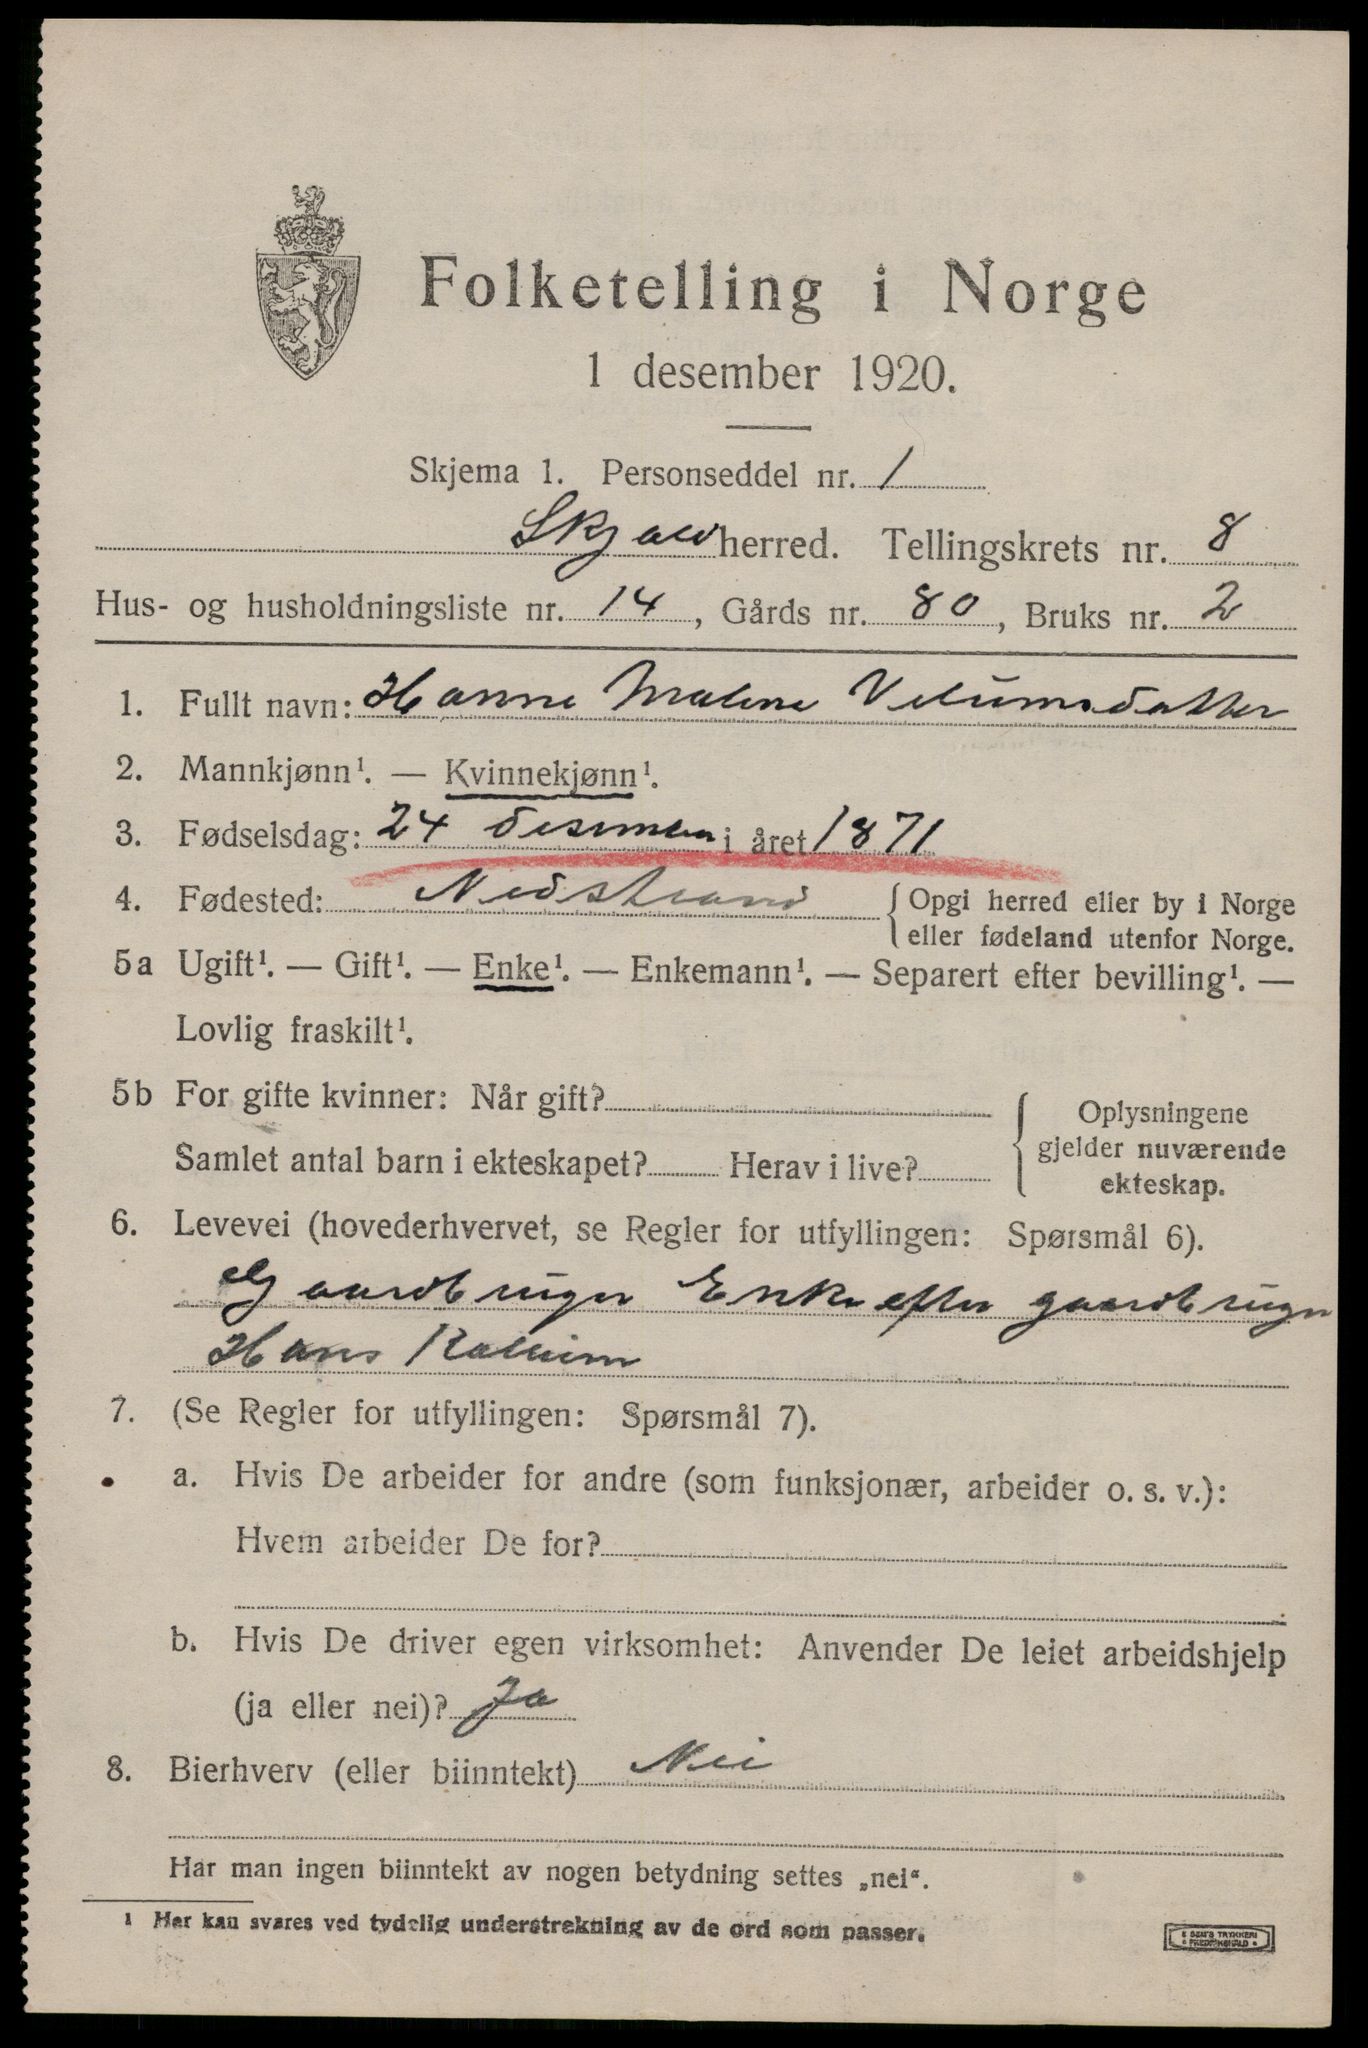 Folketelling i Norge
1 desember 1920.
Skjema 1. Personseddel nr. 1
Skjold herred. Tellingskrets nr. 8
Hus- og husholdningsliste nr. 14, Gårds nr. 80, Bruks nr. 2
1. Fullt navn: Hanne Malene
2. Mannkjønn¹. — Kvinnekjønn¹.
3. Fødselsdag: 24 desember i året 1871
4. Fødested: Nedstrand { Opgi herred eller by i Norge
eller fødeland utenfor Norge.
5a Ugift¹. — Gift¹. — Enke¹. — Enkemann¹. — Separert efter bevilling¹. —
Lovlig fraskilt¹.
5b For gifte kvinner: Når gift?
Samlet antal barn i ekteskapet? Herav i live?
Oplysningene
gjelder nuværende
ekteskap.
6. Levevei (hovederhvervet, se Regler for utfyllingen: Spørsmål 6).
Gaardbruger Enke efter gaardbruger
Hans
7. (Se Regler for utfyllingen: Spørsmål 7).
a. Hvis De arbeider for andre (som funksjonær, arbeider o. s. v.):
Hvem arbeider De for?
b. Hvis De driver egen virksomhet: Anvender De leiet arbeidshjelp
(ja eller nei)? Ja
8. Bierhverv (eller biinntekt) Nei
Har man ingen biinntekt av nogen betydning settes „nei“.
1 Her kan svares ved tydelig understrekning av de ord som passer.
E SEM'S TRYKKERI
FREDRIKSHALD